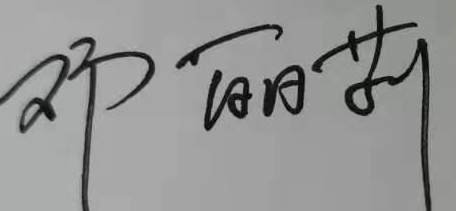 邓丽莉